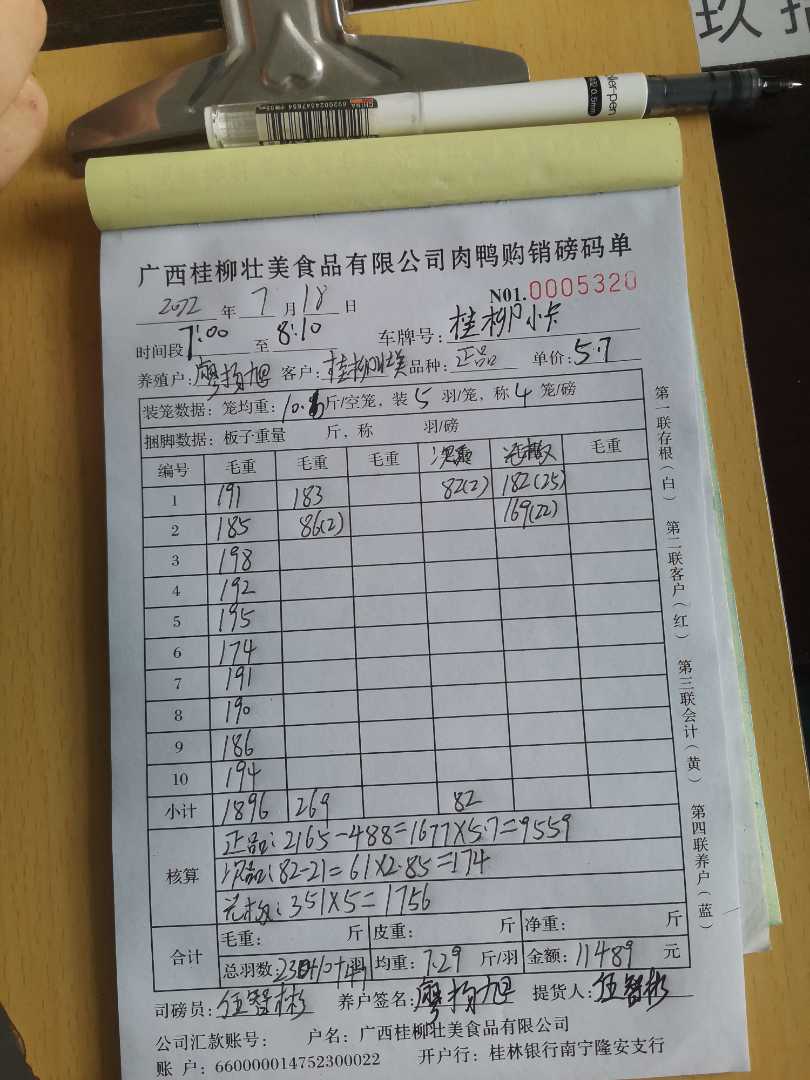 玖
CHINA 6920002457654
ler-pen
0.5mm
广西桂柳壮美食品有限公司肉鸭购销磅码单
2022 年 7 月 18 日
N01.0005320
时间段 7:00 至 8:10 车牌号: 桂柳小卡
养殖户: 廖杨旭 客户: 桂柳壮美 品种: 正品 单价: 5.7
装笼数据: 笼均重: 斤/空笼, 装 5 羽/笼, 称 4 笼/磅
捆脚数据: 板子重量 斤, 称 羽/磅
编号 毛重 毛重 毛重 毛重
1 191 183 82(2) 182(25)
2 185 86(2) 169(22)
3 198
4 192
5 195
6 174
7 191
8 190
9 186
10 194
小计 1896 269 82
核算
正品: 2165-488=1677×5.7=9559
次品: 82-21=61×2.85=174
351×5=1756
合计 毛重: 斤 皮重: 斤 净重: 斤
总羽数: 均重: 7.29 斤/羽 金额: 11489 元
司磅员: 伍智彬 养户签名: 廖杨旭 提货人: 伍智彬
公司汇款账号: 户名: 广西桂柳壮美食品有限公司
账 户: 660000014752300022 开户行: 桂林银行南宁隆安支行
第一联存根(白) 第二联客户(红) 第三联会计(黄) 第四联养户(蓝)